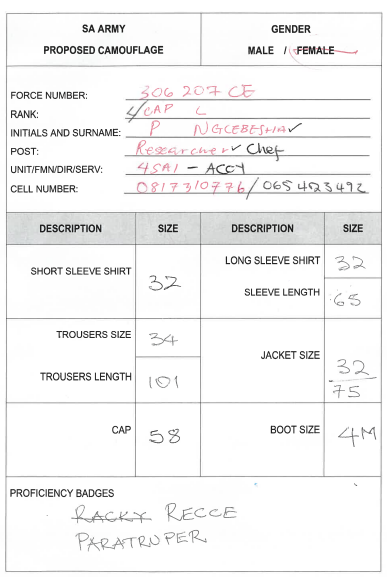 SA ARMY
PROPOSED CAMOUFLAGE
GENDER
MALE / FEMALE
FORCE NUMBER: 306 207 CE
RANK: L/CAP L
INITIALS AND SURNAME: P NGCEBESHA
POST: Researcher Chef
UNIT/FMN/DIR/SERV: 4SAI - ACCY
CELL NUMBER: 0817310776 / 065 4523492
DESCRIPTION SIZE DESCRIPTION SIZE
SHORT SLEEVE SHIRT 32
LONG SLEEVE SHIRT 32
SLEEVE LENGTH 65
TROUSERS SIZE 34
TROUSERS LENGTH 101
JACKET SIZE 32/75
CAP 58
BOOT SIZE 4M
PROFICIENCY BADGES
RACKY RECCE
PARATRUPER